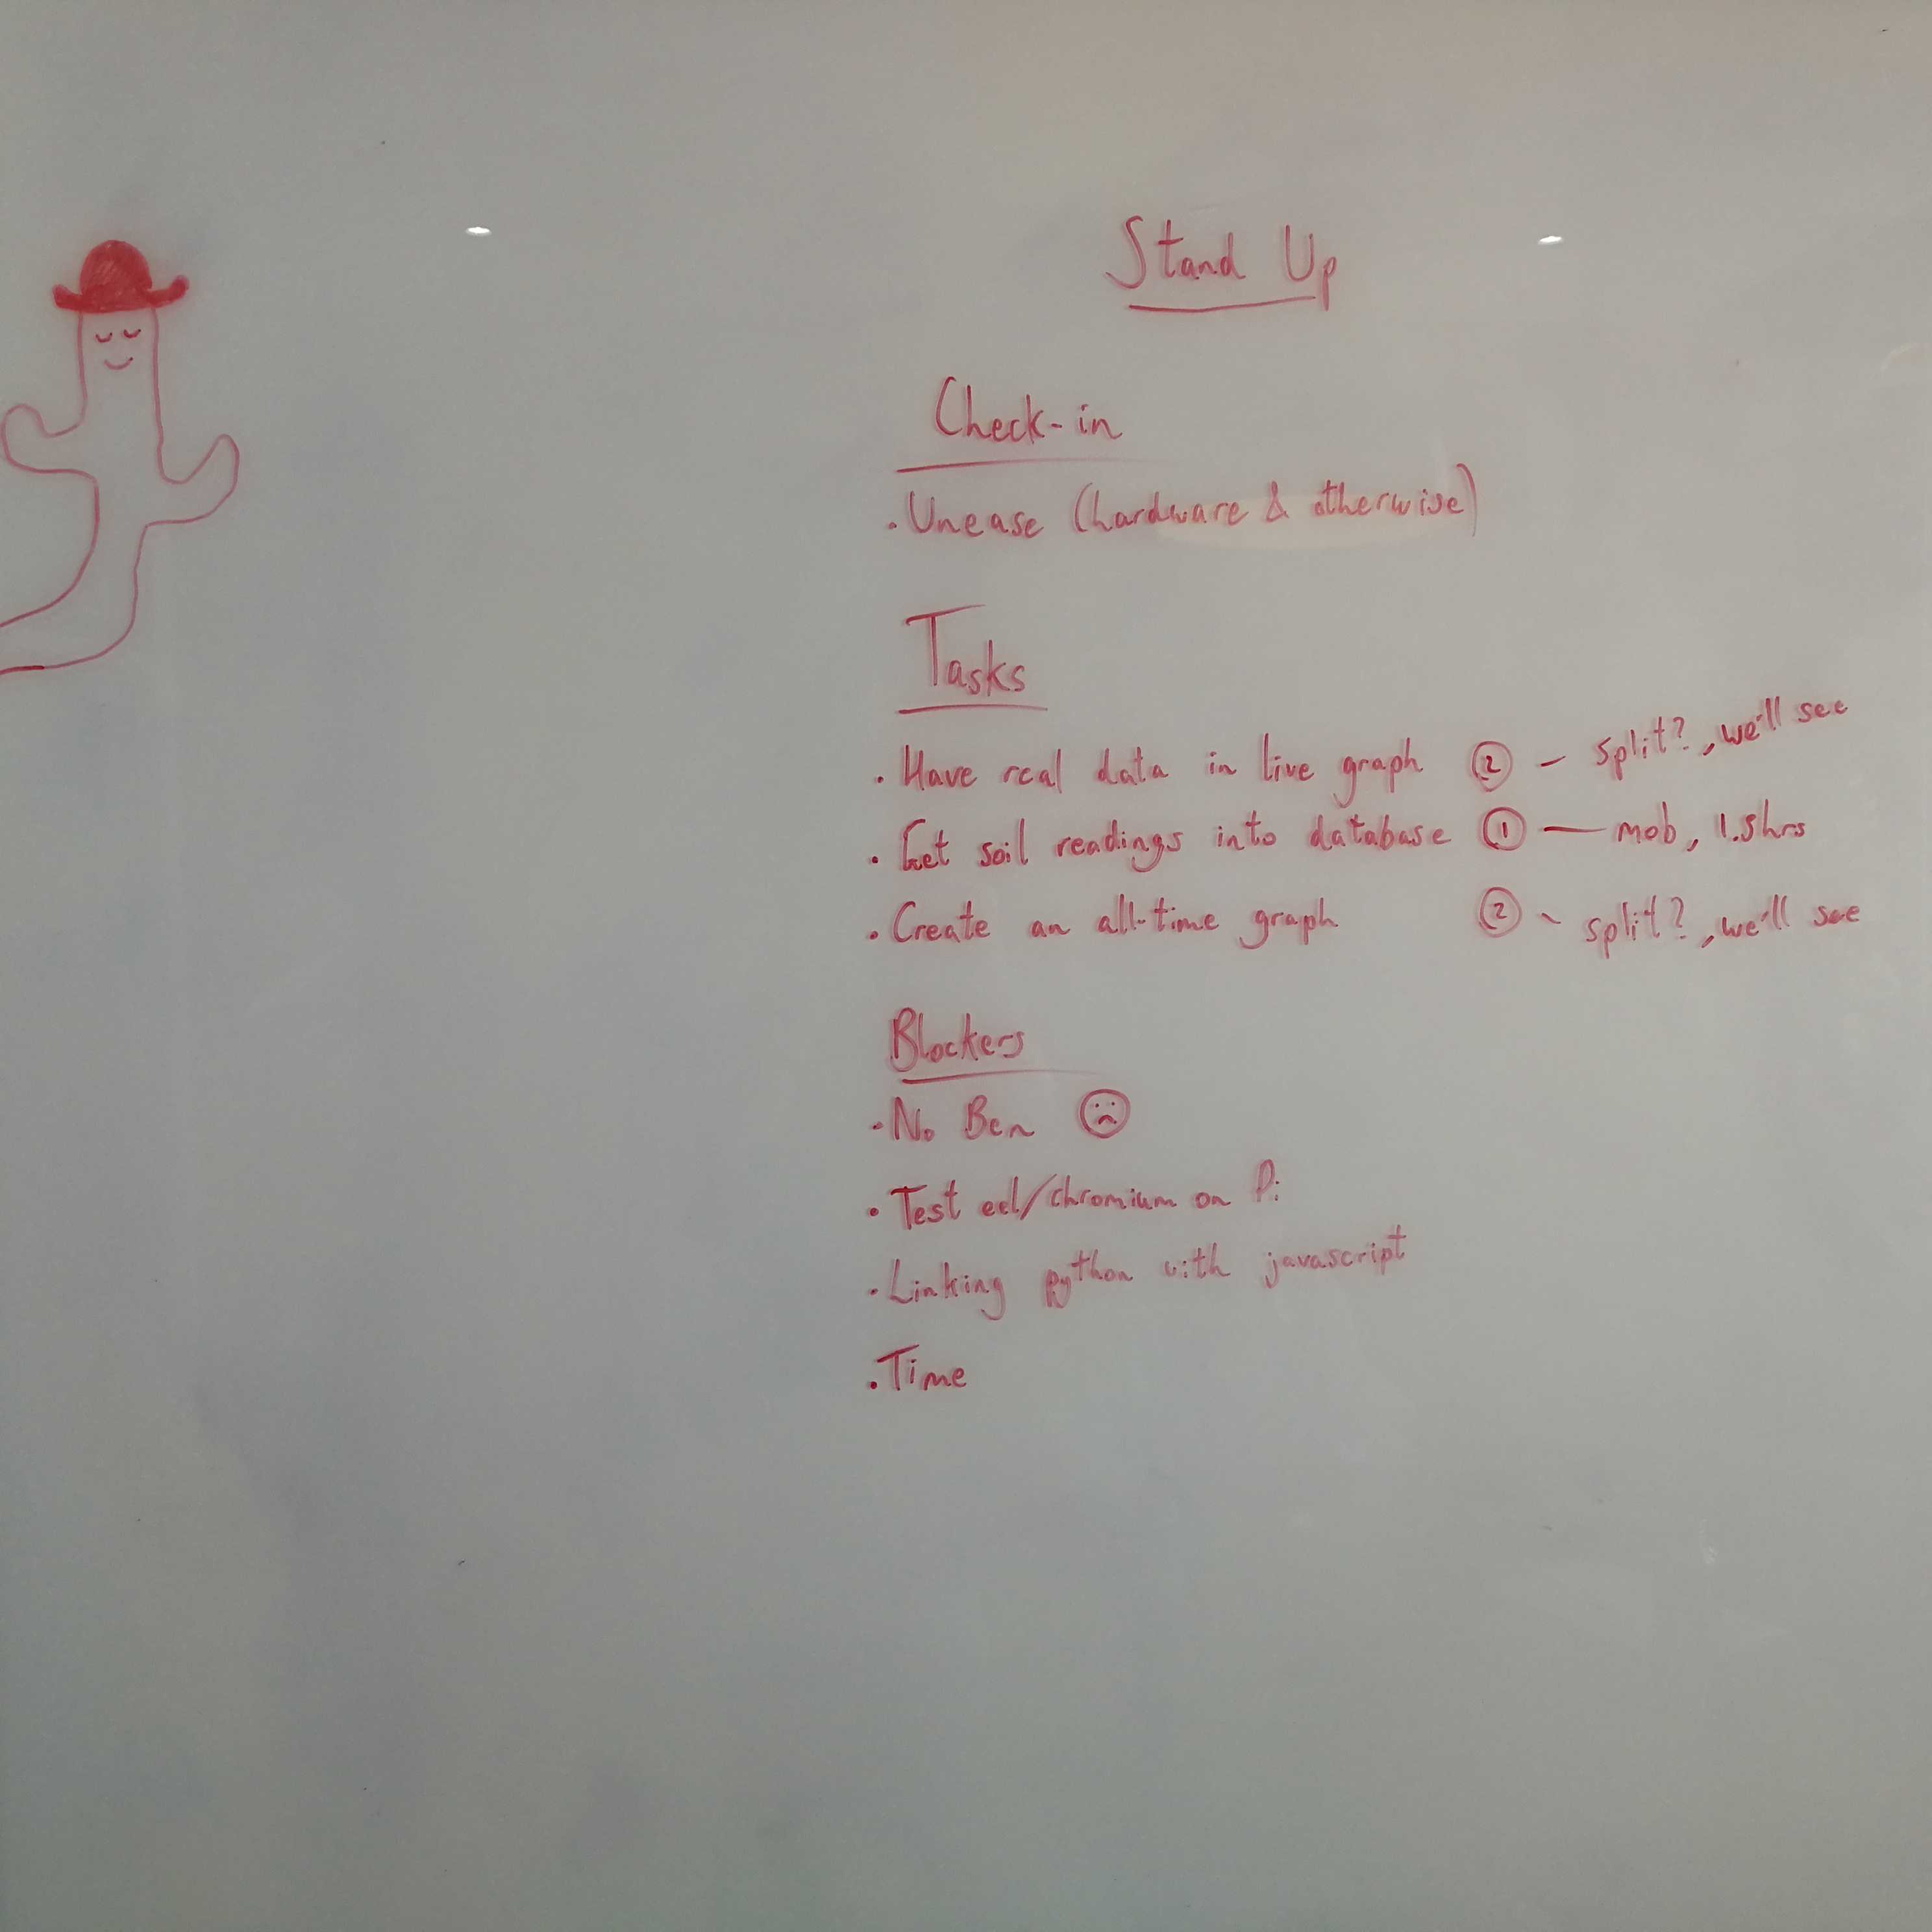 Stand Up
Check-in
. Unease (hardware & otherwise)
Tasks
. Have real data in live graph ② - split?, we'll see
. Get soil readings into database ① — mob, 1.5hrs
. Create an all-time graph ② - split?, we'll see
Blockers
. No Ben ☹
. Test eel/chromium on Pi
. Linking python with javascript
. Time